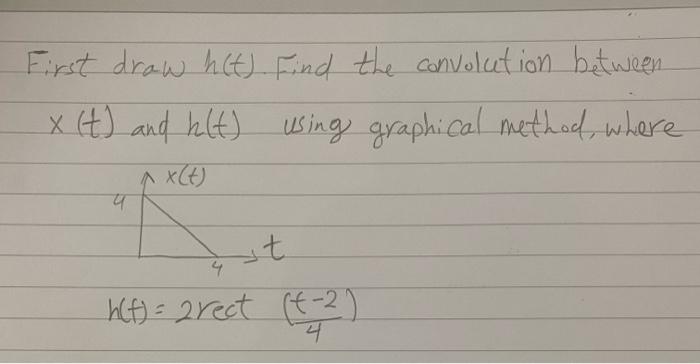 First draw h(t). Find the convolution between
x(t) and h(t) using graphical method, where
x(t)
4
t
4
h(t) = 2rect (t-2)
4